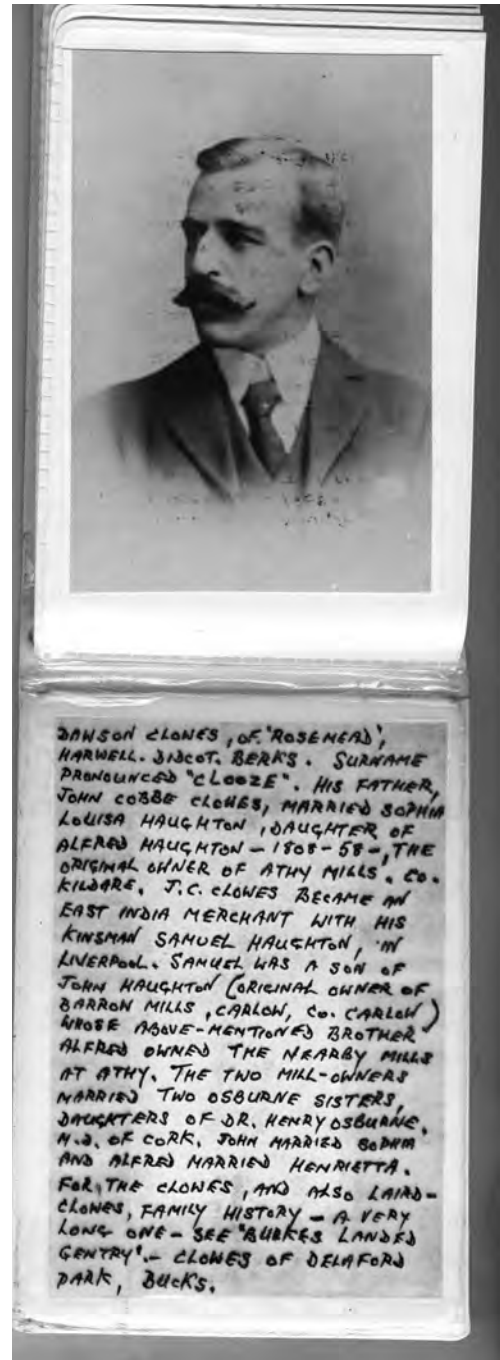 DAWSON CLOWES, OF "ROSEMEAD",
HARWELL. DIDCOT. BERKS. SURNAME
PRONOUNCED "CLOOZE". HIS FATHER,
JOHN COBBE CLOWES, MARRIED SOPHIA
LOUISA HAUGHTON, DAUGHTER OF
ALFRED HAUGHTON - 1808-58-, THE
ORIGINAL OWNER OF ATHY MILLS. CO.
KILDARE. J.C. CLOWES BECAME AN
EAST INDIA MERCHANT WITH HIS
KINSMAN SAMUEL HAUGHTON, IN
LIVERPOOL. SAMUEL WAS A SON OF
JOHN HAUGHTON (ORIGINAL OWNER OF
BARRON MILLS, CARLOW, CO. CARLOW)
WHOSE ABOVE-MENTIONED BROTHER
ALFRED OWNED THE NEARBY MILLS
AT ATHY. THE TWO MILL-OWNERS
MARRIED TWO OSBURNE SISTERS,
DAUGHTERS OF DR. HENRY OSBURNE.
M.D. OF CORK. JOHN MARRIED SOPHIA
AND ALFRED MARRIED HENRIETTA.
FOR THE CLOWES, AND ALSO LAIRD-
CLOWES, FAMILY HISTORY - A VERY
LONG ONE - SEE "BURKES LANDED
GENTRY".- CLOWES OF DELAFORD
PARK, BUCKS.